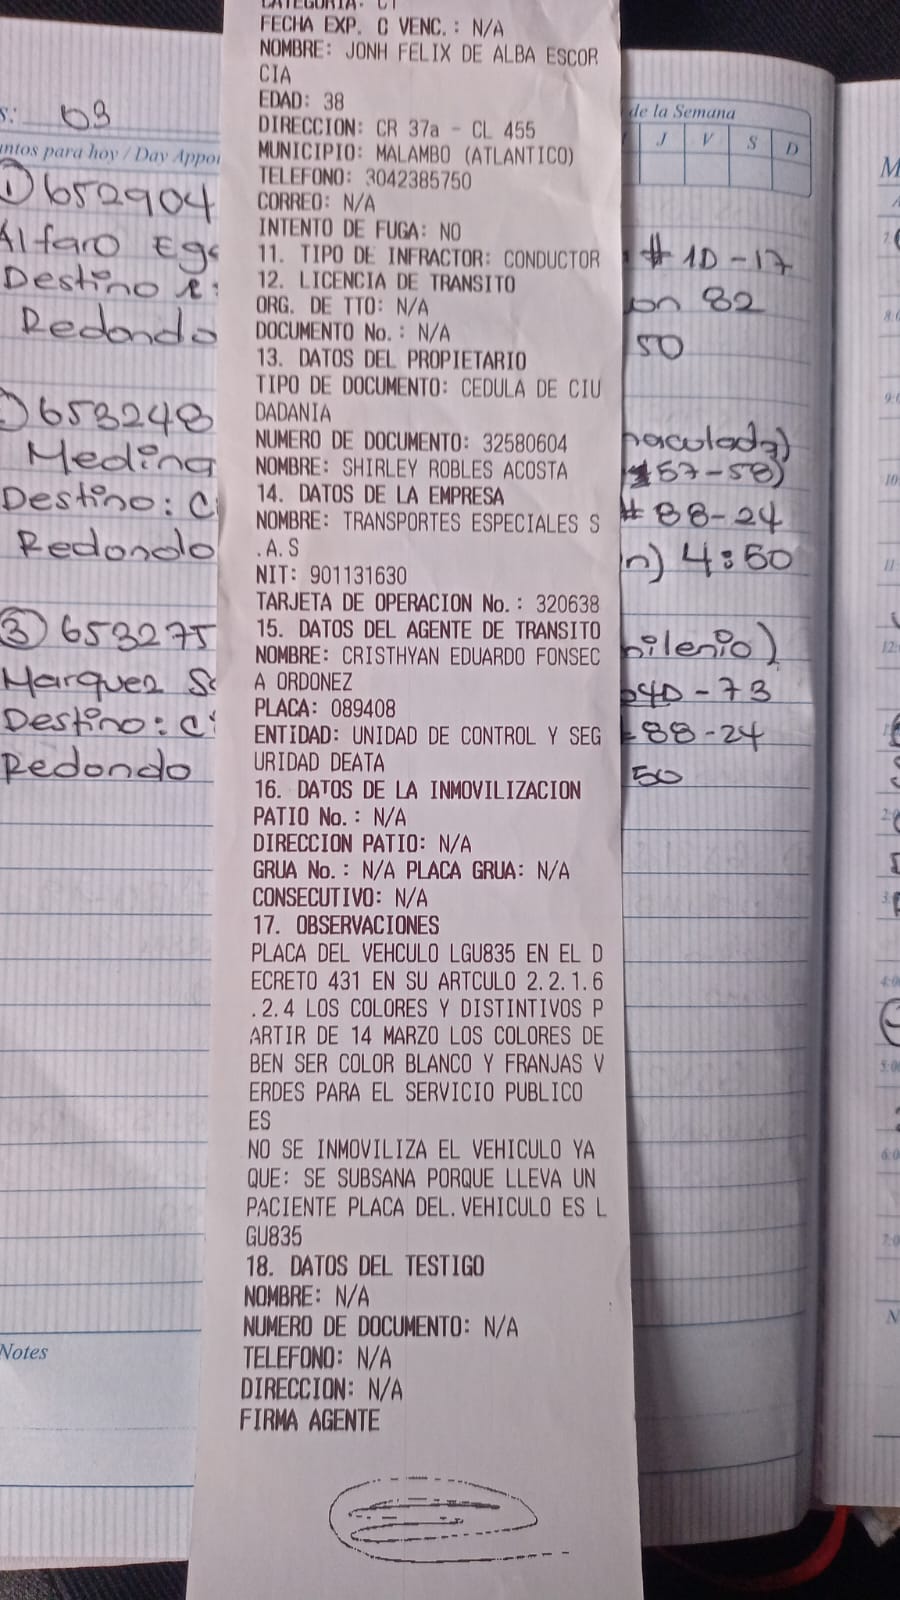 CATEGORIA: C1
FECHA EXP. O VENC.: N/A
NOMBRE: JONH FELIX DE ALBA ESCOR
CIA
EDAD: 38
DIRECCION: CR 37a - CL 455
MUNICIPIO: MALAMBO (ATLANTICO)
TELEFONO: 3042385750
CORREO: N/A
INTENTO DE FUGA: NO
11. TIPO DE INFRACTOR: CONDUCTOR
12. LICENCIA DE TRANSITO
ORG. DE TTO: N/A
DOCUMENTO No.: N/A
13. DATOS DEL PROPIETARIO
TIPO DE DOCUMENTO: CEDULA DE CIU
DADANIA
NUMERO DE DOCUMENTO: 32580604
NOMBRE: SHIRLEY ROBLES ACOSTA
14. DATOS DE LA EMPRESA
NOMBRE: TRANSPORTES ESPECIALES S
.A.S
NIT: 901131630
TARJETA DE OPERACION No.: 320638
15. DATOS DEL AGENTE DE TRANSITO
NOMBRE: CRISTHYAN EDUARDO FONSEC
A ORDONEZ
PLACA: 089408
ENTIDAD: UNIDAD DE CONTROL Y SEG
URIDAD DEATA
16. DATOS DE LA INMOVILIZACION
PATIO No.: N/A
DIRECCION PATIO: N/A
GRUA No.: N/A PLACA GRUA: N/A
CONSECUTIVO: N/A
17. OBSERVACIONES
PLACA DEL VEHCULO LGU835 EN EL D
ECRETO 431 EN SU ARTCULO 2.2.1.6
.2.4 LOS COLORES Y DISTINTIVOS P
ARTIR DE 14 MARZO LOS COLORES DE
BEN SER COLOR BLANCO Y FRANJAS V
ERDES PARA EL SERVICIO PUBLICO
ES
NO SE INMOVILIZA EL VEHICULO YA
QUE: SE SUBSANA PORQUE LLEVA UN
PACIENTE PLACA DEL.VEHICULO ES L
GU835
18. DATOS DEL TESTIGO
NOMBRE: N/A
NUMERO DE DOCUMENTO: N/A
TELEFONO: N/A
DIRECCION: N/A
FIRMA AGENTE
03
ntos para hoy / Day Appoi
① 652904
Alfaro
Destino
Redondo
653248
Medina
Destino: C
Redondo
③ 653275
Marquez
Destino: C
Redondo
Notes
de la Semana
J V S D
# 10-17
on 82
50
57-58)
# 88-24
n) 4:50
milenio)
40-73
88-24
50